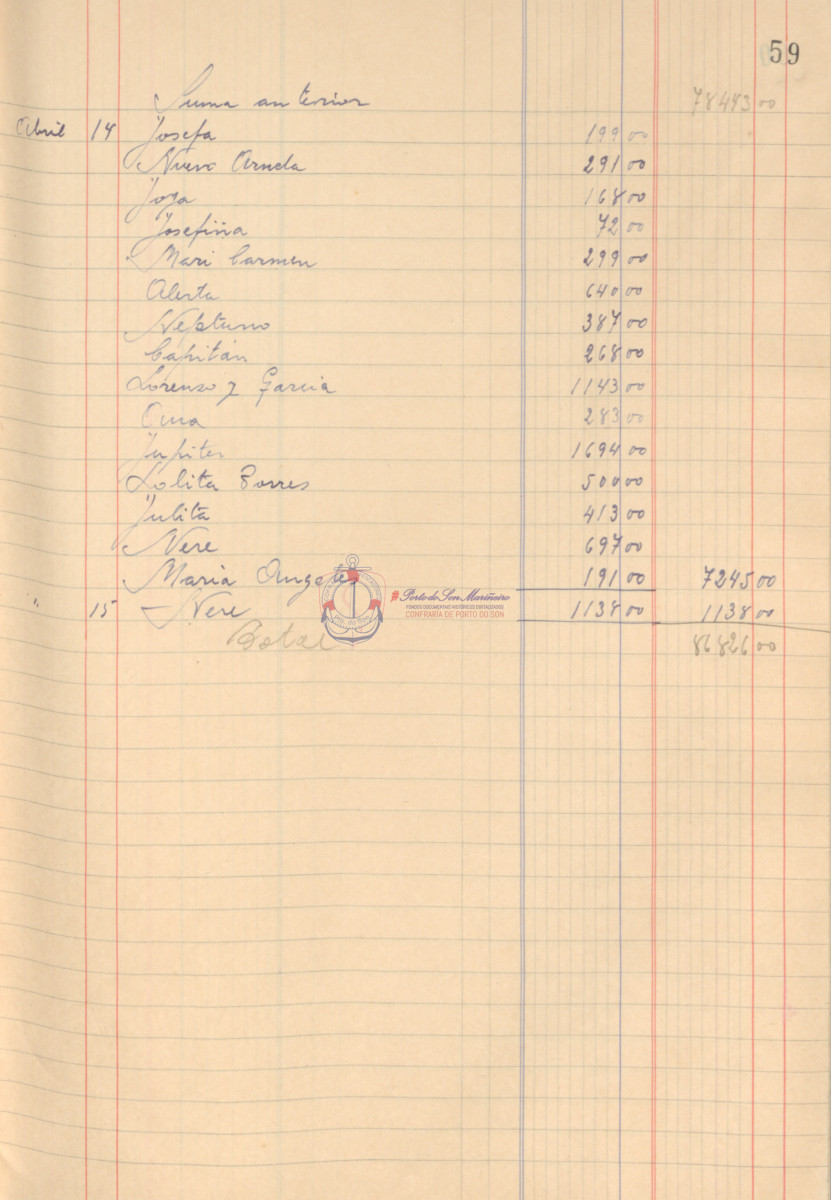 59
Suma anterior 78443 00
Abril 14 Josefa 199 00
Nueva Arnela 291 00
Joya 168 00
Josefina 72 00
Mari Carmen 299 00
Alerta 640 00
Neptuno 387 00
Capitán 268 00
Lorenzo y Garcia 1143 00
283 00
Jupiter 1694 00
Lolita Torres 500 00
Julita 413 00
Nere 697 00
Maria Angeles 191 00 7245 00
" 15 Nere 1138 00 1138 00
Total 86826 00
#Porto do Son Mariñeiro
FONDOS DOCUMENTAIS HISTÓRICOS DIXITALIZADOS
CONFRARÍA DE PORTO DO SON